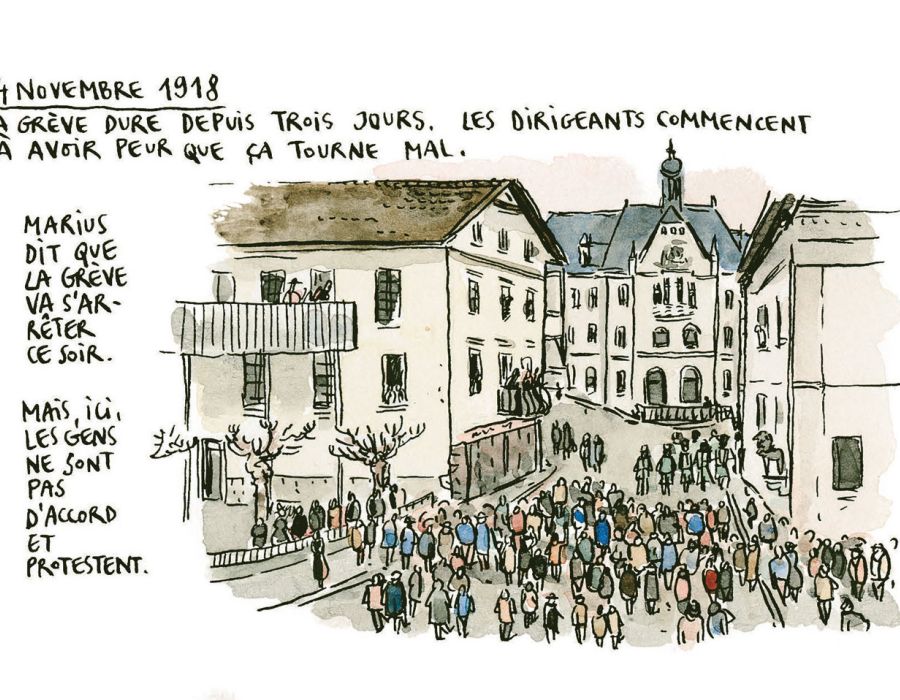 4 NOVEMBRE 1918
A GRÈVE DURE DEPUIS TROIS JOURS. LES DIRIGEANTS COMMENCENT
À AVOIR PEUR QUE ÇA TOURNE MAL.
MARIUS
DIT QUE
LA GRÈVE
VA S'AR-
RÊTER
CE SOIR.
MAIS, ICI,
LES GENS
NE SONT
PAS
D'ACCORD
ET
PROTESTENT.